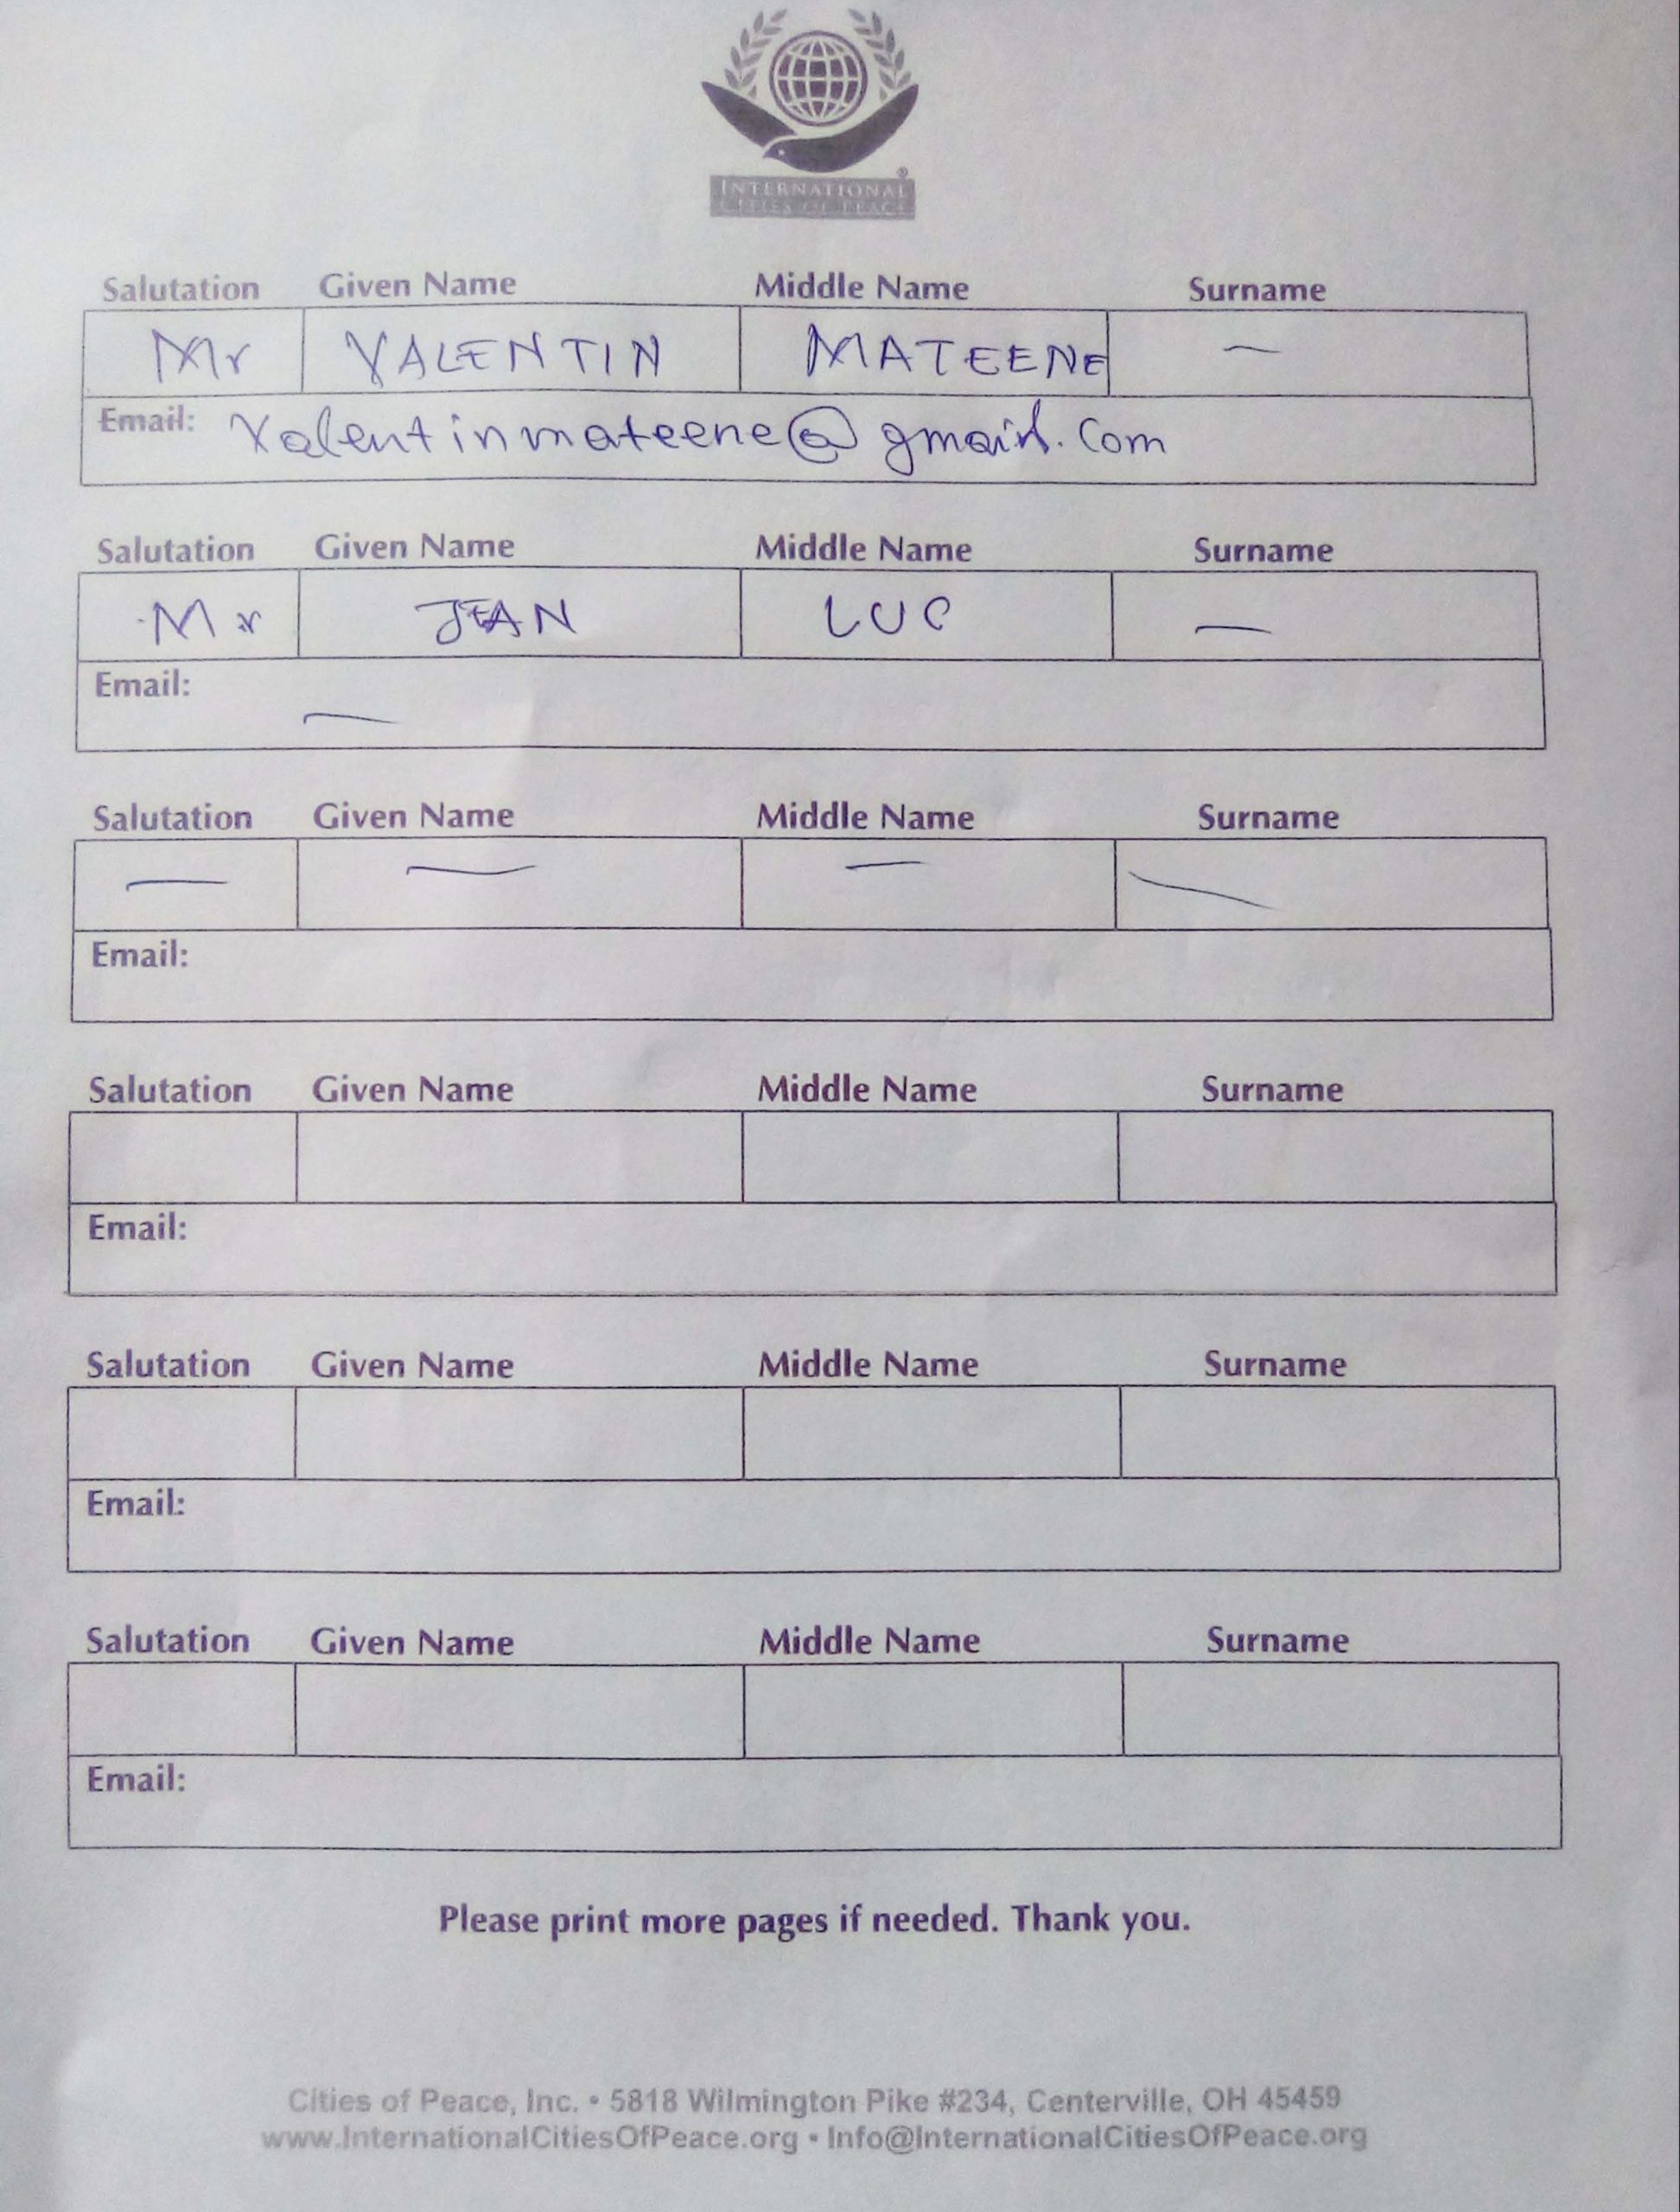 INTERNATIONAL
CITIES OF PEACE
Salutation Given Name Middle Name Surname
Mr VALENTIN MATEENE —
Email: Valentinmateene@gmail.com
Salutation Given Name Middle Name Surname
Mr JEAN LUC —
Email: —
Salutation Given Name Middle Name Surname
— — — —
Email:
Salutation Given Name Middle Name Surname
Email:
Salutation Given Name Middle Name Surname
Email:
Salutation Given Name Middle Name Surname
Email:
Please print more pages if needed. Thank you.
Cities of Peace, Inc. • 5818 Wilmington Pike #234, Centerville, OH 45459
www.InternationalCitiesOfPeace.org • Info@InternationalCitiesOfPeace.org